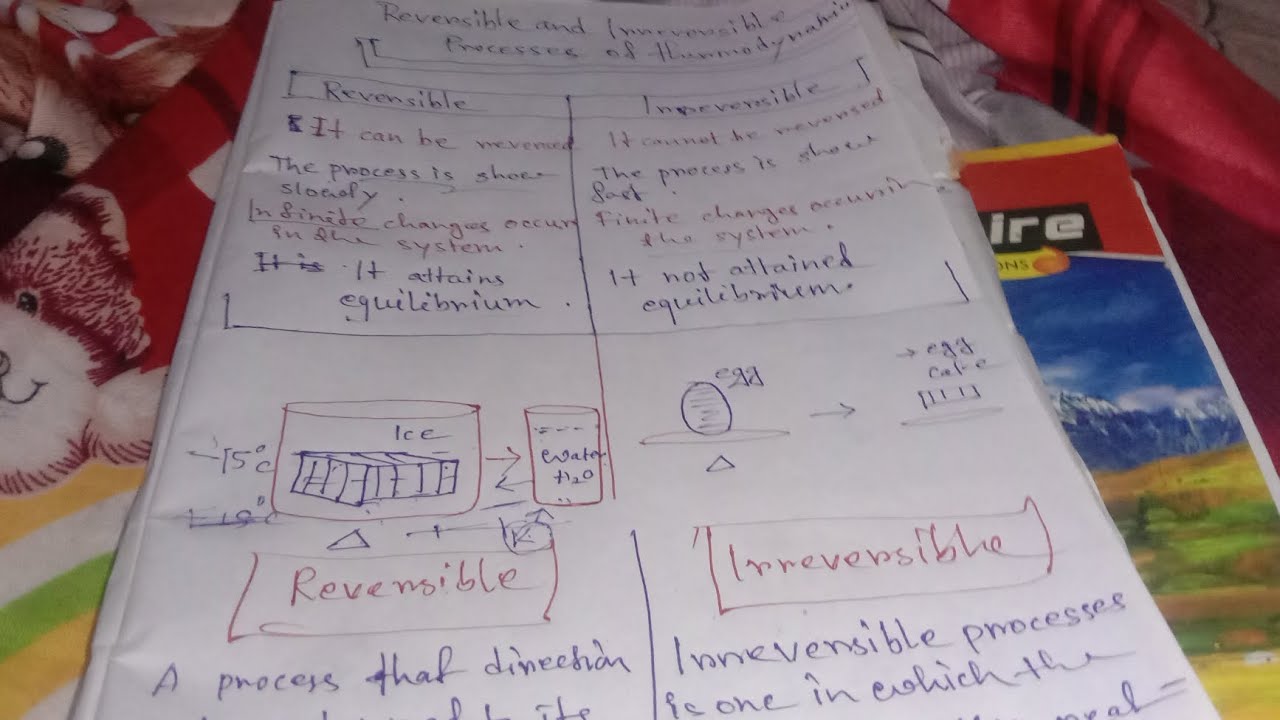 Reversible and Irreversible
Processes of thermodynamic
Reversible
Irreversible
It can be reversed
It cannot be reversed
The process is
slowly .
The process is
fast .
Infinite changes occur
in the system .
Finite changes occurs in
the system .
It is It attains
equilibrium .
It not attained
equilibrium .
Ice
15°C
water
H2O
egg
→ egg
cake
ire
ONS
Reversible
Irreversible
A process that direction
to its
Irreversible processes
is one in which the